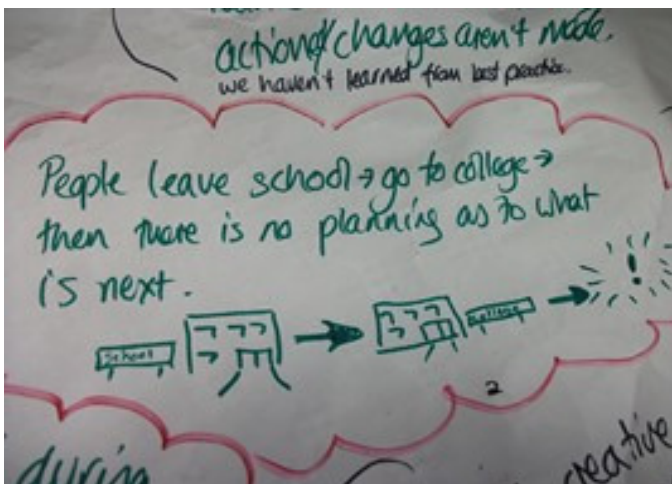 action/changes aren't made.
we haven't learned from best practice.
People leave school → go to college →
then there is no planning as to what
is next.
School
college
!
2
during
creative